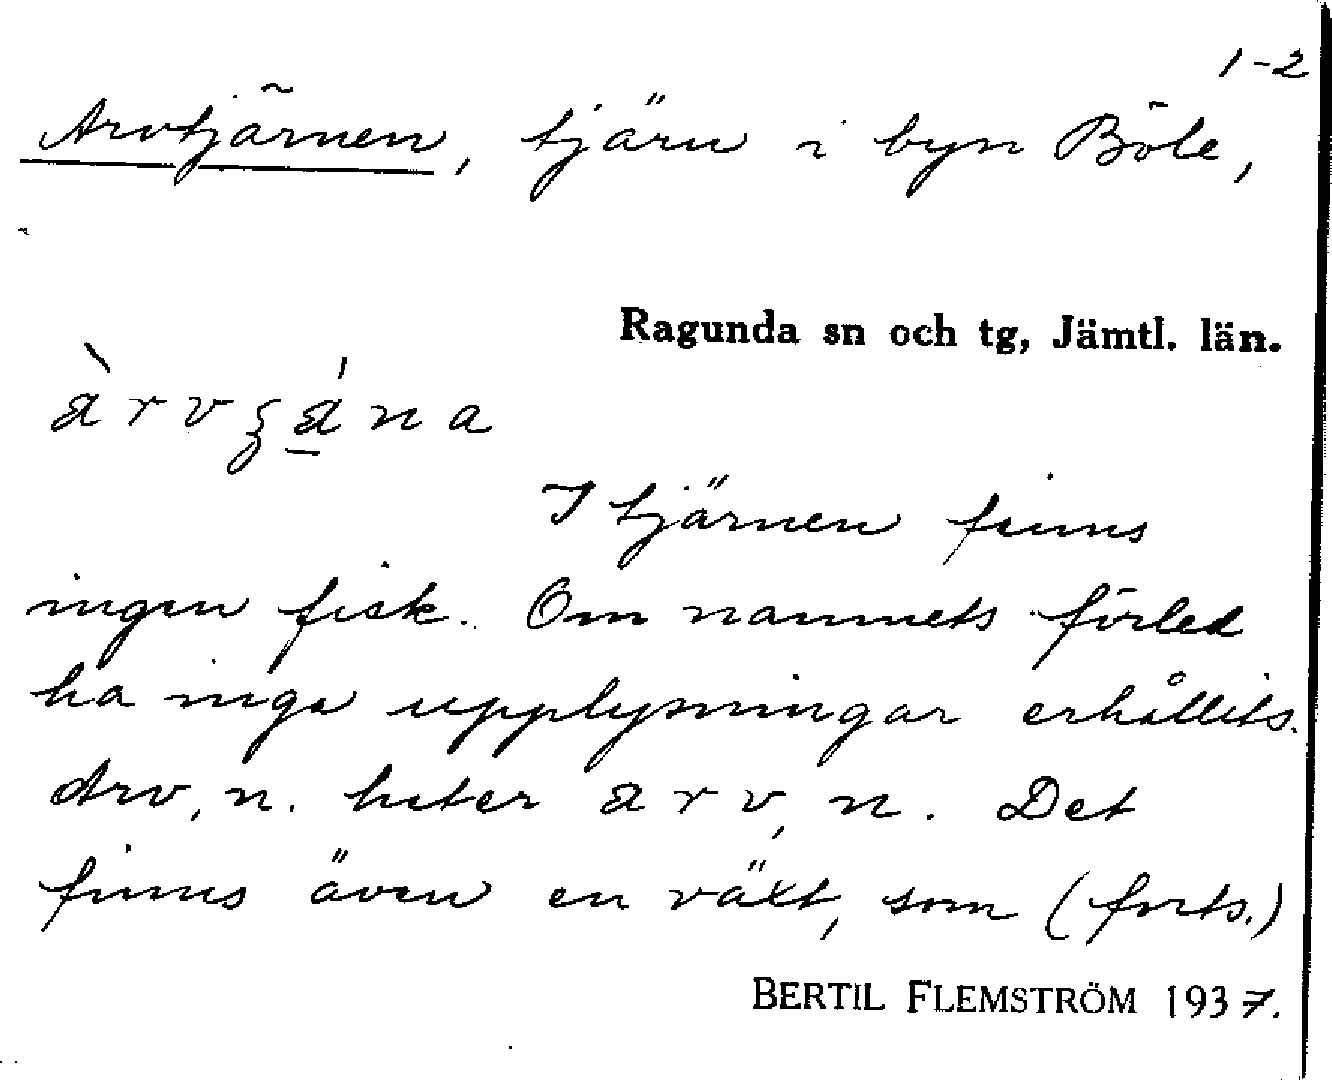 1-2
Arvtjärnen, tjärn i byn Böle,
Ragunda sn och tg, Jämtl. län.
àrvʒá̱na
I tjärnen finns
ingen fisk. Om namnets förled
ha inga upplysningar erhållits.
Arv, n. heter arv, n. Det
finns även en växt, som (forts.)
BERTIL FLEMSTRÖM 1937.